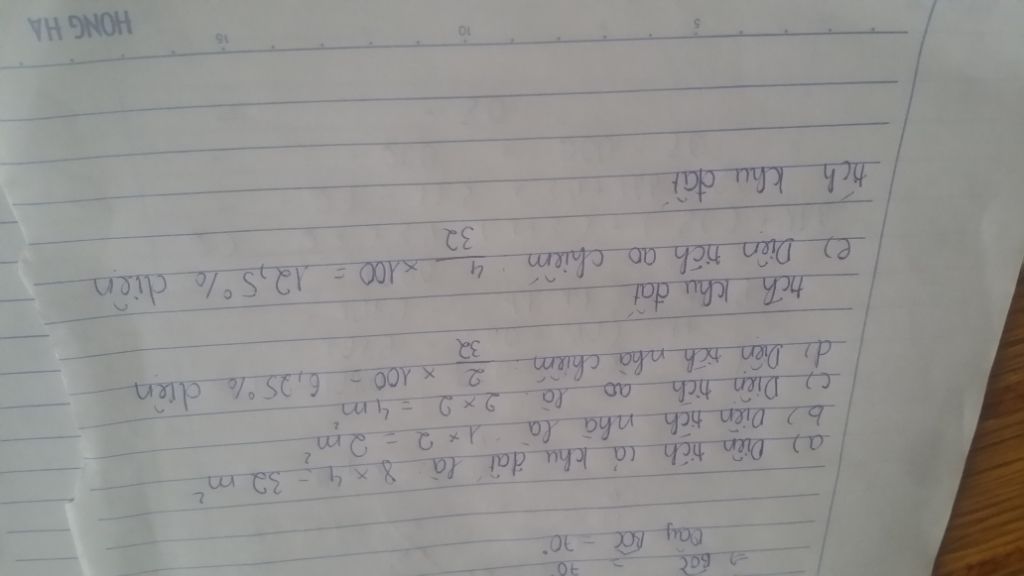 ⇒ BOC = 70°
Vay BOC = 70°
a) Diện tích cả khu đất là 8 × 4 = 32 m²
b) Diện tích nhà là 1 × 2 = 2m²
c) Diện tích ao là 2 × 2 = 4m²
d) Diện tích nhà chiếm 2/32 × 100 = 6,25% diện
tích khu đất
e) Diện tích ao chiếm 4/32 × 100 = 12,5% diện
tích khu đất
5 10 15
HONG HA